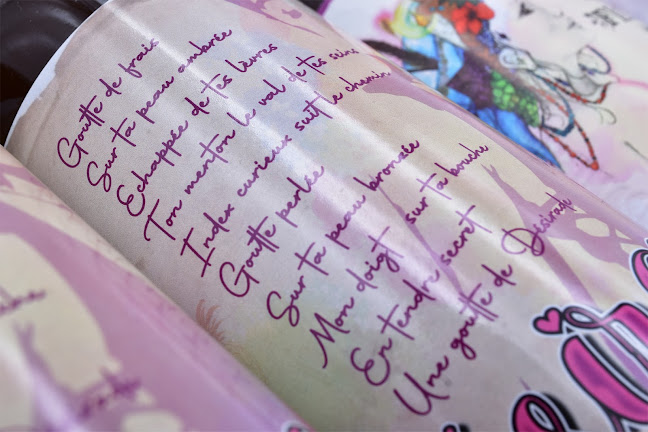 Goutte de frais
Sur ta peau ambrée
Echappée de tes lèvres
Ton menton le val de tes seins
Index curieux suit le chemin
Goutte perlée
Sur ta peau bronzée
Mon doigt sur ta bouche
En tendre secret
Une goutte de Désirade